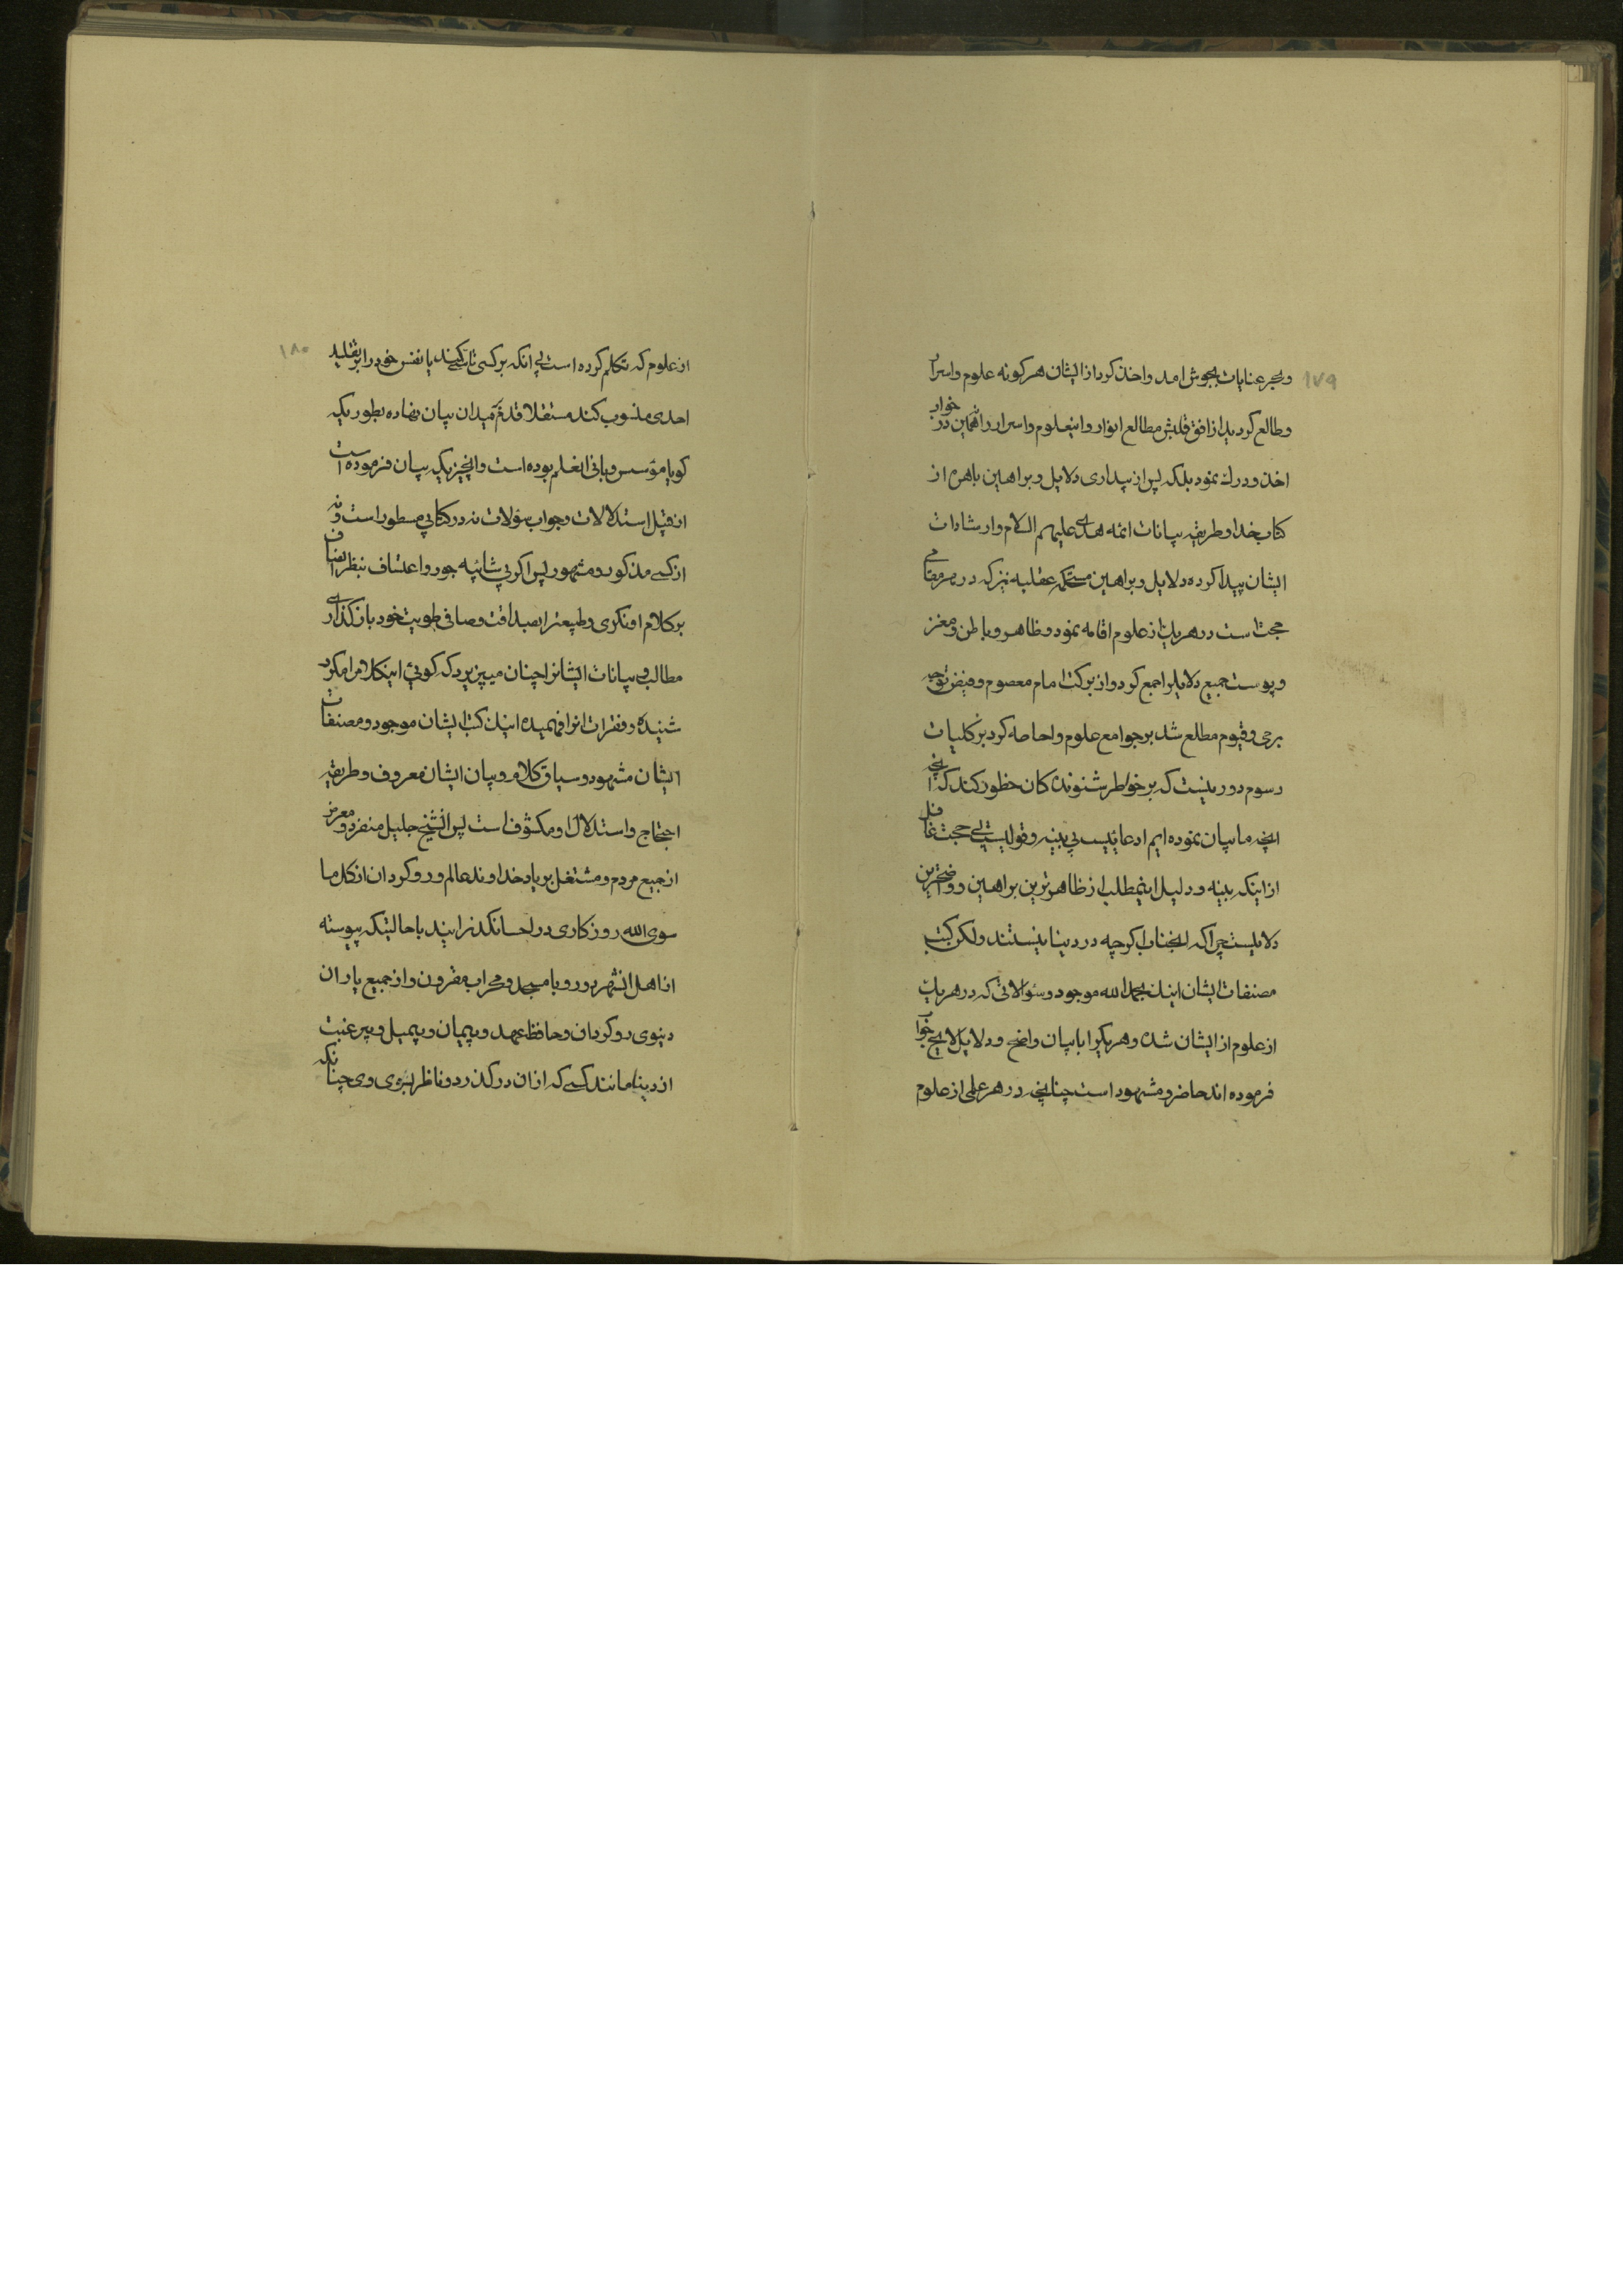 ۱۷۹
وبحر عنایات بجوش امد واخذ کرد از ایشان هر کونه علوم واسرار
وطالع کردید از افق قلبش مطالع انوار واینعلوم واسرار را نه همین در خواب
اخذ ودرك نمود بلکه پس از بیداری دلایل وبراهین باهره از
کتاب خدا وطریقه بیانات ائمه هدی علیهم السلام وارشادات
ایشان پیدا کرده دلایل وبراهین مستحکمه عقلیه نیز که در هر مقامی
حجت است در هریك از علوم اقامه نمود وظاهر وباطن ومغز
وپوست جمیع دلایلرا جمع کرد واز برکت امام معصوم وفیض توجه
برحی وقیوم مطلع شد بر جوامع علوم واحاطه کرد بر کلیات
رسوم دور نیست که بر خواطر شنوندکان خطور کند که انچه
انچه ما بیان نموده ایم ادعائیست بی بینه وقولیست بی حجت غافل
از اینکه بینه ودلیل اینمطلب از ظاهرترین براهین وواضحترین
دلایلست چرا که انجناب اکرچه در دنیا نیستند ولکن کتب
مصنفات ایشان اینك بحمد الله موجود وسؤالاتی که در هریك
از علوم از ایشان شده وهر یکرا با بیان واضح ودلایل لایح جواب
فرموده اند حاضر ومشهود است چنانچه در هر علمی از علوم
۱۸۰
از علوم که تکلم کرده است بی انکه بر کسی تاسی کند یا نفس خود را بر تقلید
احدی منسوب کند مستقلا قدم بمیدان بیان نهاده بطوریکه
کویا مؤسس وبانی انعلم بوده است وانچیزیکه بیان فرموده است
از قبیل استدلالات وجواب سؤلات نه در کتابی مسطور است ونه
از کسی مذکور ومشهور پس اکر بی شائبه جور واعتساف بنظر انصاف
بر کلام او نکری وطبیعترا بصداقت وصافی طویت خود باز کذاری
مطالب وبیانات ایشانرا چنان میپزیرد که کوئی اینکلامرا مکرر
شنیده وفقرات انرا فهمیده اینك کتب ایشان موجود ومصنفات
ایشان مشهود وسیاق کلام وبیان ایشان معروف وطریقه
احتجاج واستدلال او مکشوف است پس انشیخ جلیل منفرد ومعرض
از جمیع مردم ومشتغل بر یاد خداوند عالم ورو کردان از کل ما
سوی الله روزکاری در احسا نکذرانیدند با حالتیکه پیوسته
از اهل انشهر دور وبا مسجد ومحراب مقرون واز جمیع یاران
دنیوی رو کردان وحافظ عهد وپیمان وبیمیل وبیرغبت
از دنیا مانند کسی که از ان درکذرد وناظر بسوی وی چنانکه